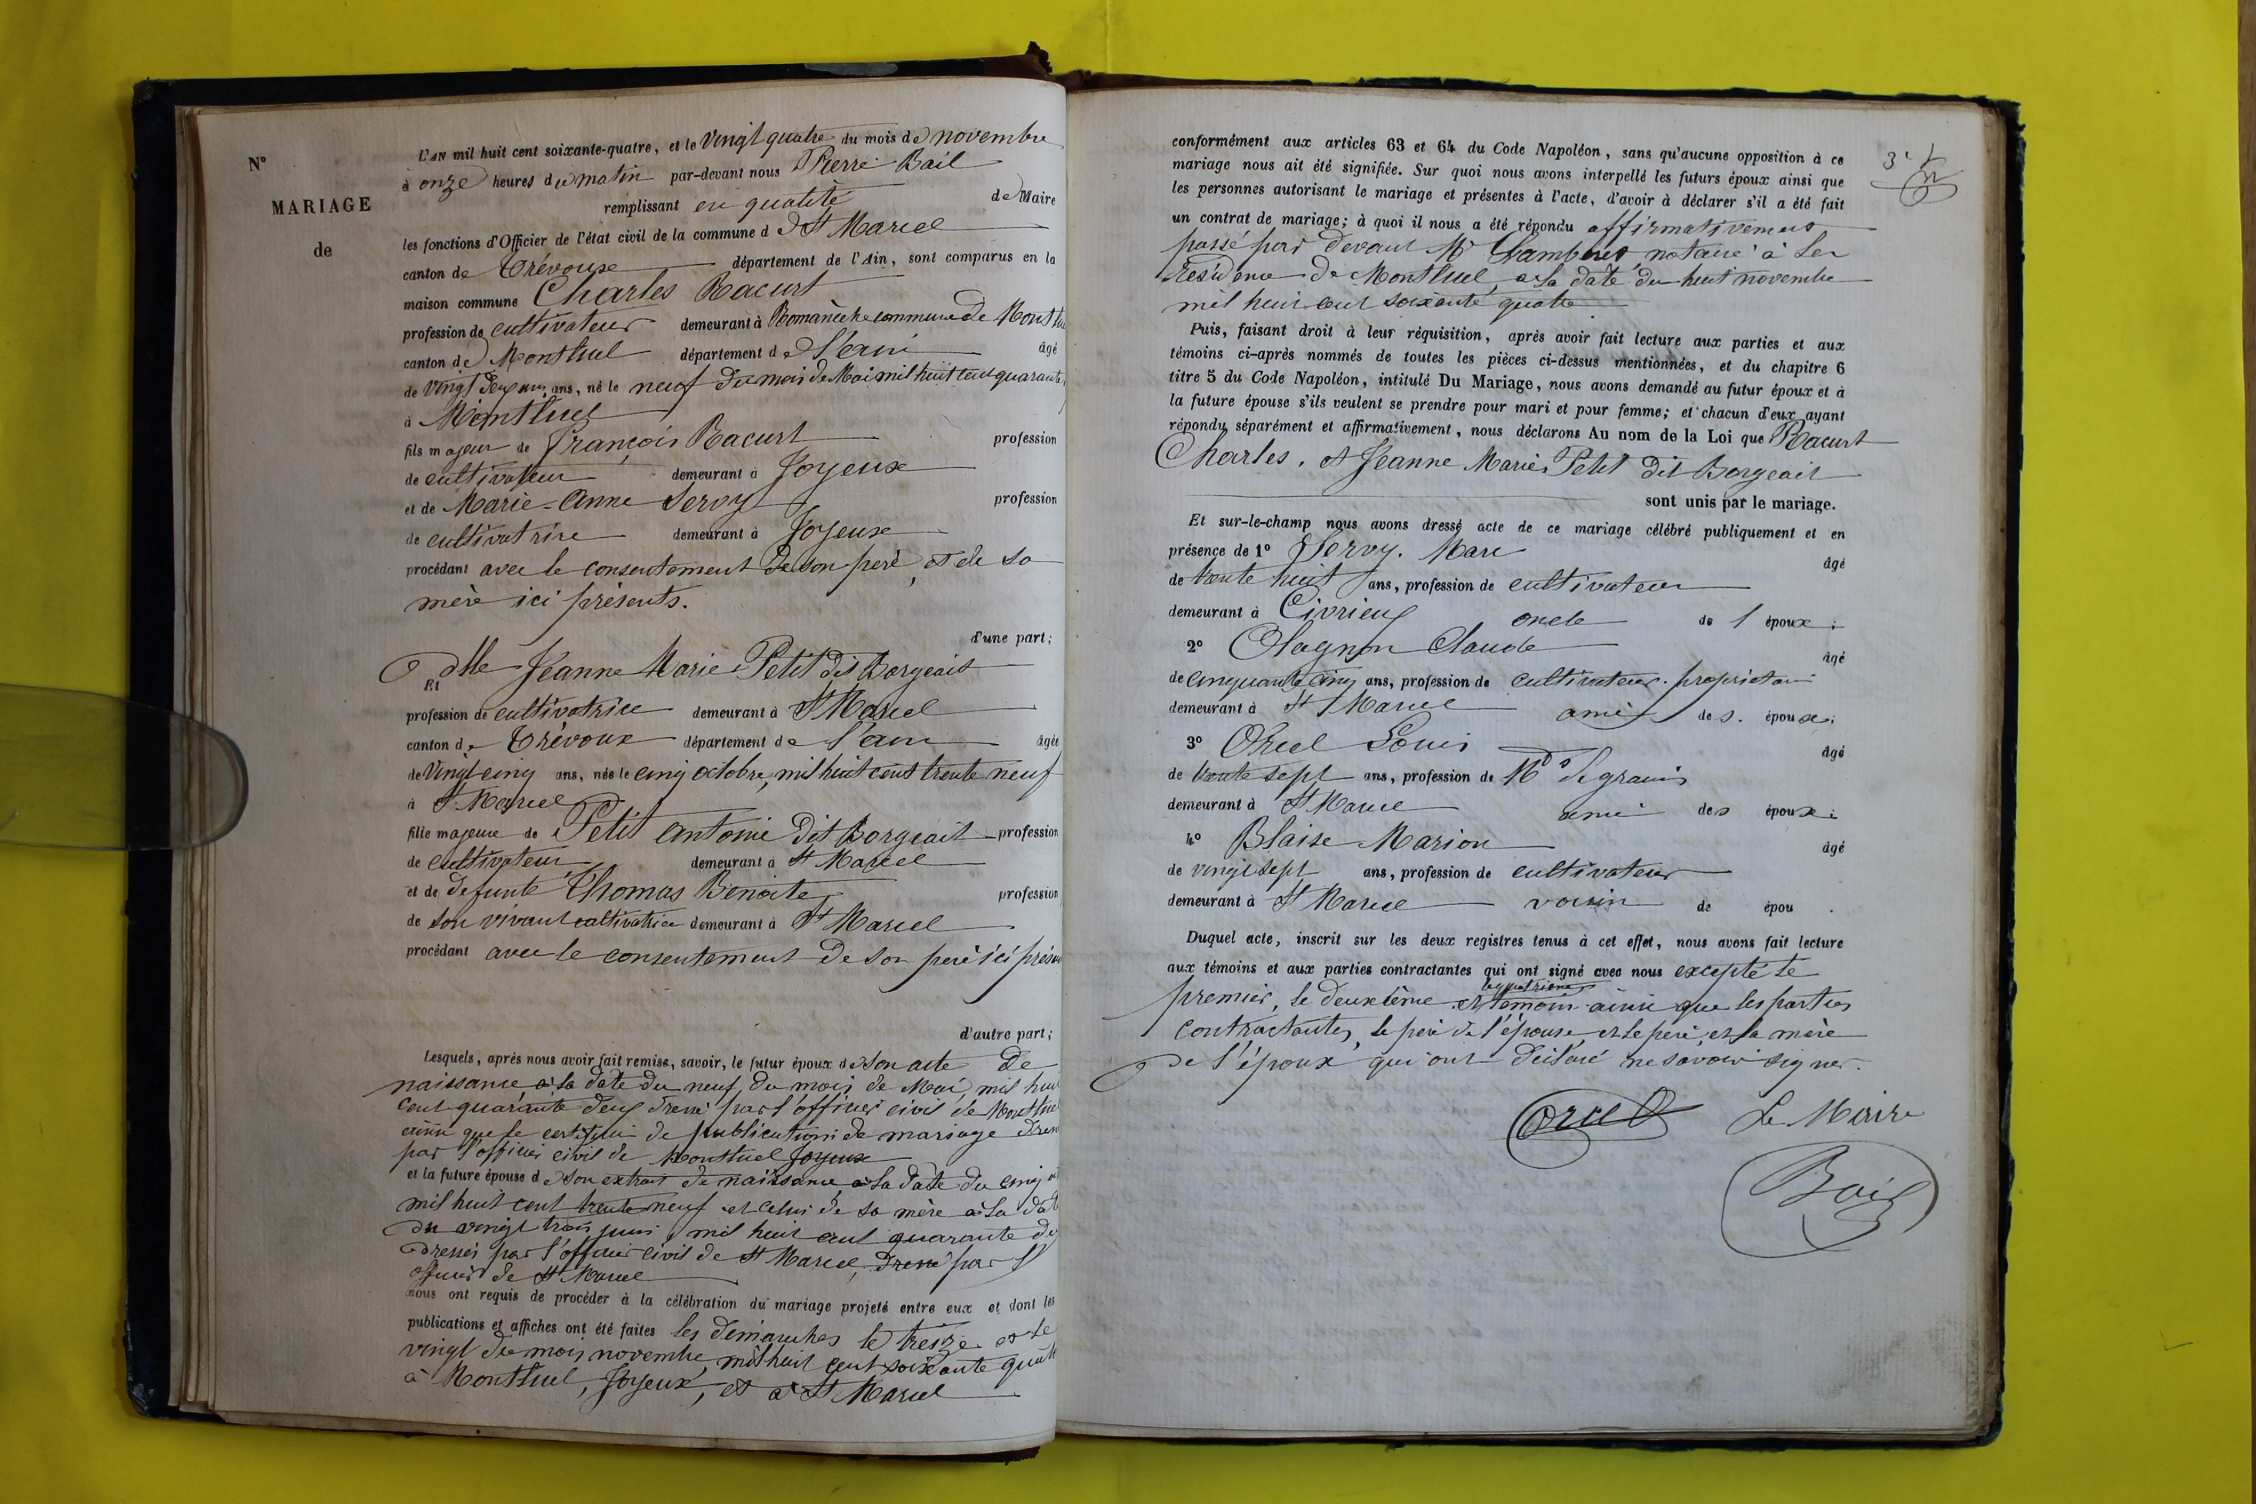 N°
MARIAGE
de
L'AN mil huit cent soixante-quatre, et le vingt quatre du mois de novembre
à onze heures du matin par-devant nous Pierre Bail
remplissant en qualité de Maire
les fonctions d'Officier de l'état civil de la commune d St Marcel
canton de Trévoux département de l'Ain, sont comparus en la
maison commune Charles Racurt
profession de cultivateur demeurant à Romanèche commune de Montlu
canton de Montluel département de l'ain âgé
de vingt deux ans ans, né le neuf du mois de Mai mil huit cent quarante
à Montluel
fils majeur de François Racurt profession
de cultivateur demeurant à Joyeux
et de Marie-Anne Servy profession
de cultivatrice demeurant à Joyeux
procédant avec le consentement de son père, et de sa
mère ici présents.
d'une part;
Et dlle Jeanne Marie Petit dit Borgeait
profession de cultivatrice demeurant à St Marcel
canton de Trévoux département de l'ain âgée
de vingt cinq ans, née le cinq octobre, mil huit cent trente neuf
à St Marcel
fille majeure de Petit antoine dit Borgeait profession
de cultivateur demeurant à St Marcel
et de defunte Thomas Benoite profession
de son vivant cultivatrice demeurant à St Marcel
procédant avec le consentement de son père ici présen
d'autre part;
Lesquels, après nous avoir fait remise, savoir, le futur époux de son acte de
naissance à la date du neuf du mois de Mai, mil hui
cent quarante deux dressé par l'officier civil de Montlue
ainsi que le certificat de publication de mariage dres
par l'officier civil de Montluel Joyeux
et la future épouse de son extrait de naissance à la date du cinq
mil huit cent trente neuf et celui de sa mère à la dat
du vingt trois juin mil huit cent quarante de
dressés par l'officier civil de St Marcel, dressé par l
officier de St Marcel
nous ont requis de procéder à la célébration du mariage projeté entre eux et dont les
publications et affiches ont été faites les dimanches le treize et le
vingt du mois novembre, mil huit cent soixante quatr
à Montluel, Joyeux, et à St Marcel
conformément aux articles 63 et 64 du Code Napoléon, sans qu'aucune opposition à ce
mariage nous ait été signifiée. Sur quoi nous avons interpellé les futurs époux ainsi que
les personnes autorisant le mariage et présentes à l'acte, d'avoir à déclarer s'il a été fait
un contrat de mariage; à quoi il nous a été répondu affirmativement
passé par devant Me Lambert notaire à la
résidence de Montluel, à la date du huit novembre
mil huit cent soixante quatre
Puis, faisant droit à leur réquisition, après avoir fait lecture aux parties et aux
témoins ci-après nommés de toutes les pièces ci-dessus mentionnées, et du chapitre 6
titre 5 du Code Napoléon, intitulé Du Mariage, nous avons demandé au futur époux et à
la future épouse s'ils veulent se prendre pour mari et pour femme; et chacun d'eux ayant
répondu séparément et affirmativement, nous déclarons Au nom de la Loi que Racurt
Charles. et Jeanne Marie Petit dit Borgeait
sont unis par le mariage.
Et sur-le-champ nous avons dressé acte de ce mariage célébré publiquement et en
présence de 1° Servy. Marc âgé
de trente huit ans, profession de cultivateur
demeurant à Civrieux oncle de l époux;
2° Olagnon Claude âgé
de cinquante cinq ans, profession de cultivateur. propriétaire
demeurant à St Marcel ami des époux;
3° Orcel Louis âgé
de trente sept ans, profession de Md de grains
demeurant à St Marcel ami des époux;
4° Blaise Marion âgé
de vingt sept ans, profession de cultivateur
demeurant à St Marcel voisin de épou .
Duquel acte, inscrit sur les deux registres tenus à cet effet, nous avons fait lecture
aux témoins et aux parties contractantes qui ont signé avec nous excepté le
premier, le deuxième et le quatrième témoin ainsi que les parties
contractantes, le père de l'épouse, et le père et la mère
de l'époux qui ont déclaré ne savoir signer.
Orcel Le Maire
Bail